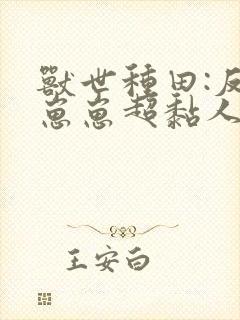 獸世種田:反
崽崽超黏人
王安白